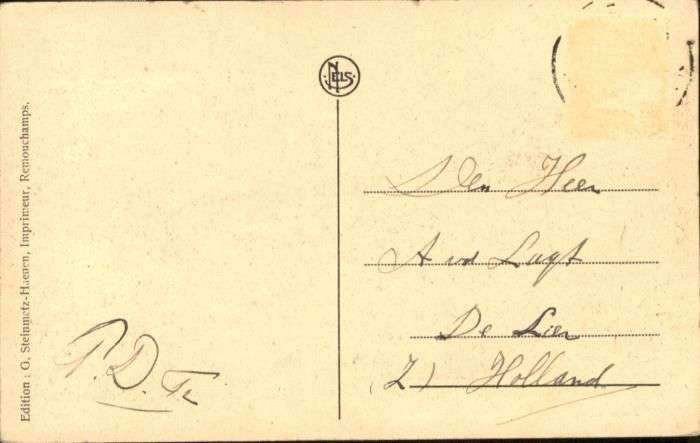 Edition : G. Steinmetz-Haenen, Imprimeur, Remouchamps.
NELS
Den Heer
A vd Lugt
De Lier
(Z) Holland
P. D. Fr